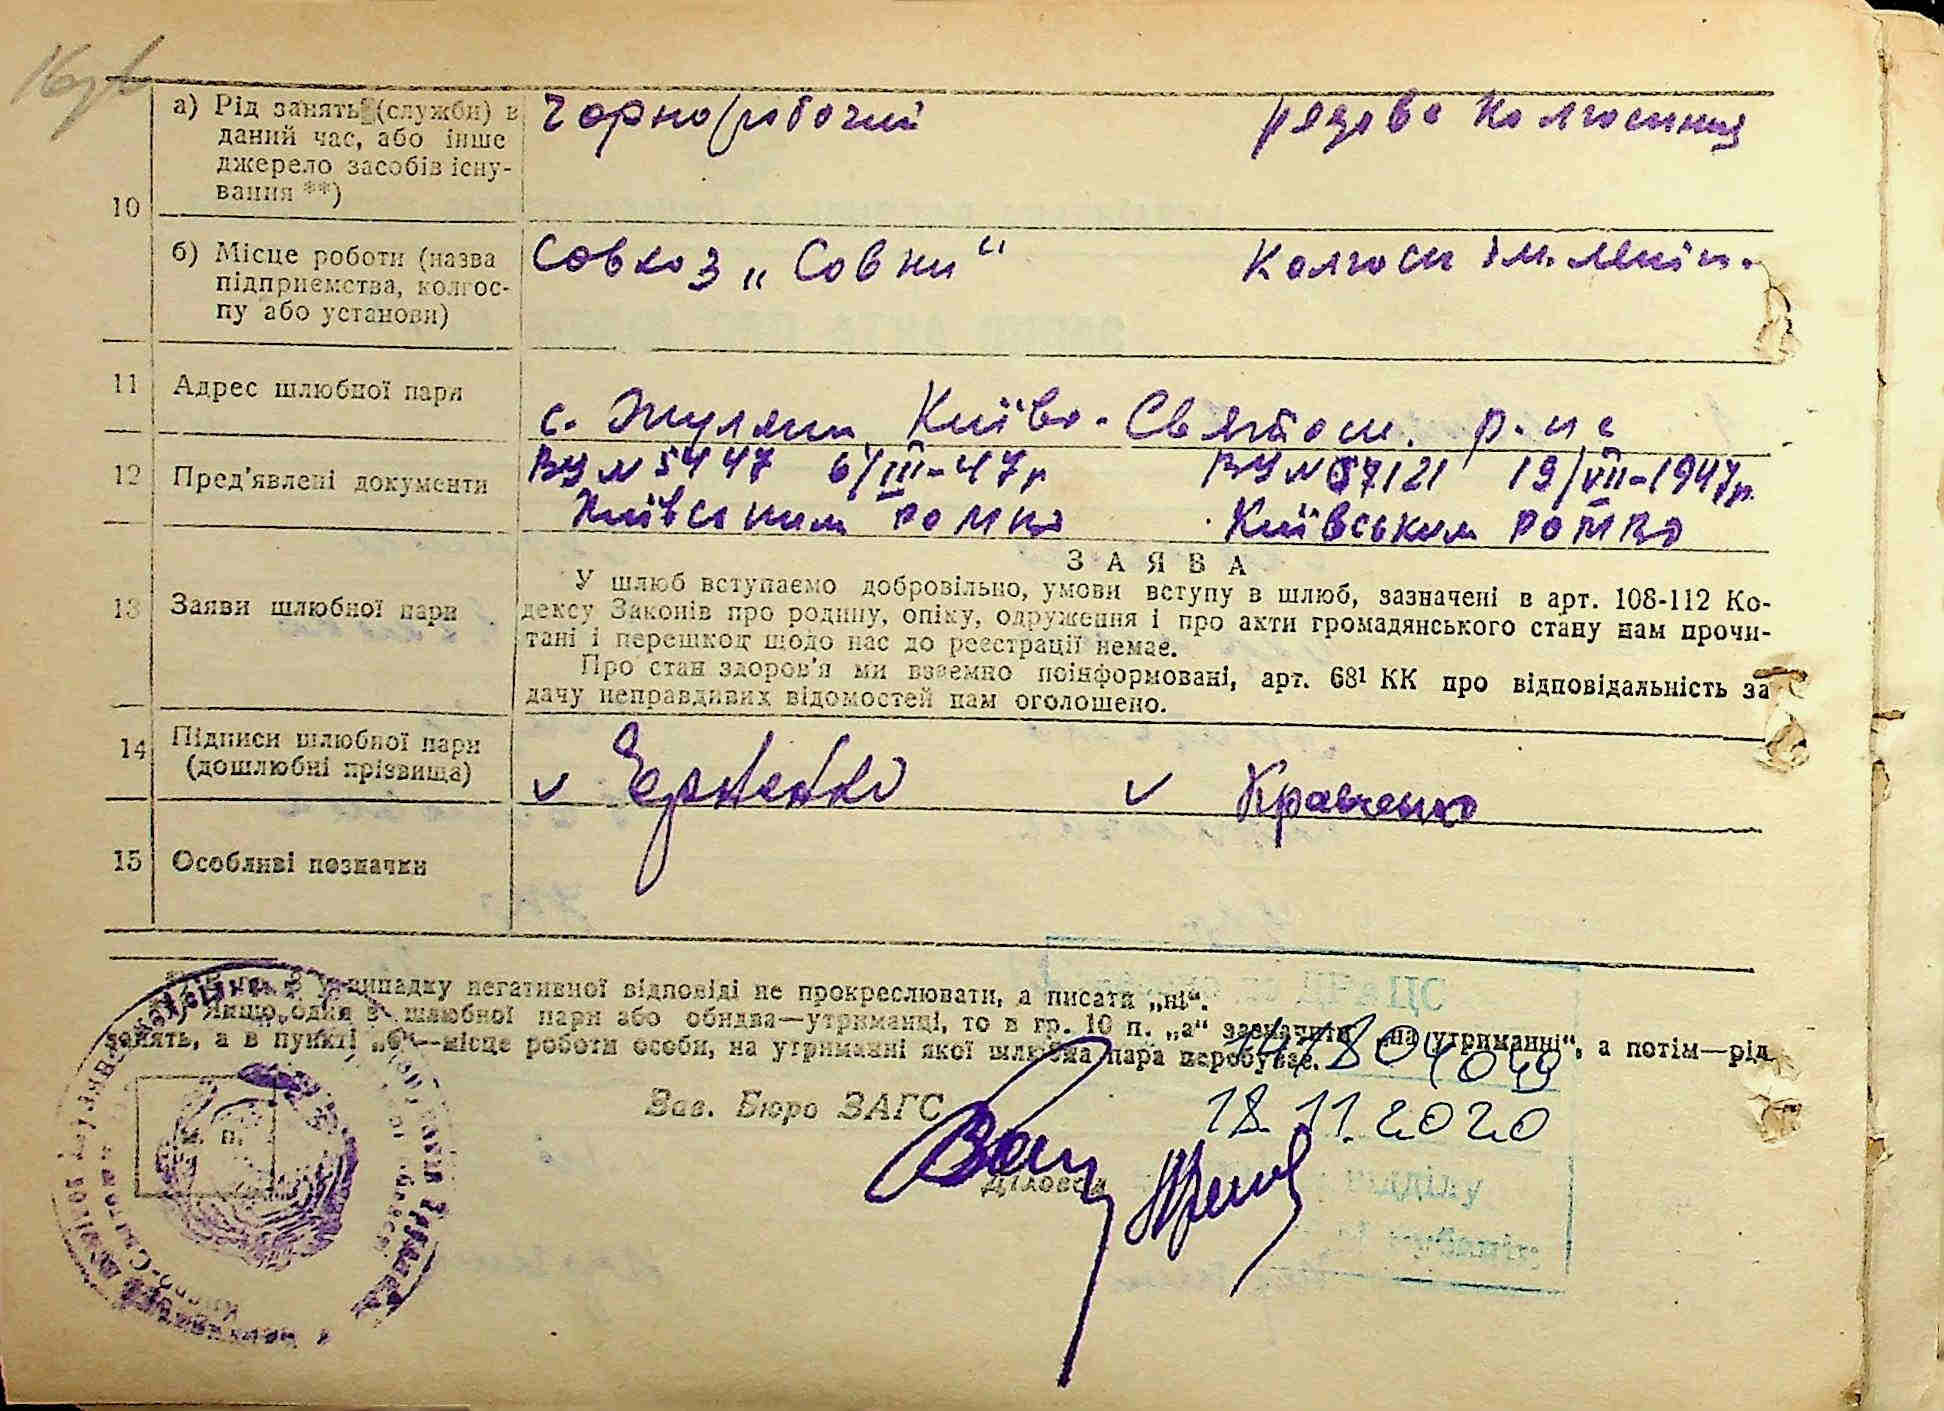 10
а) Рід занять (служби) в даний час, або інше джерело засобів існування **)
Чорноробочий
рядова колгоспниця
б) Місце роботи (назва підприємства, колгоспу або установи)
Совхоз „Совки“
Колгосп ім. Леніна
11 Адрес шлюбної пари
с. Жуляни Києво-Святош. р-на
12 Пред'явлені документи
ВУ № 5447 6/III-47р
ВУ № 57121 19/VII-1947р.
Київським РОМВД
Київським РОМВД
13 Заяви шлюбної пари
ЗАЯВА
У шлюб вступаємо добровільно, умови вступу в шлюб, зазначені в арт. 108-112 Ко-
дексу Законів про родину, опіку, одруження і про акти громадянського стану нам прочи-
тані і перешкод щодо нас до реєстрації немає.
Про стан здоров'я ми взаємно поінформовані, арт. 68¹ КК про відповідальність за
дачу неправдивих відомостей нам оголошено.
14 Підписи шлюбної пари
(дошлюбні прізвища)
v
v Кравченко
15 Особливі позначки
у випадку негативної відповіді не прокреслювати, а писати „ні“.
Якщо одна з шлюбної пари або обидва—утриманці, то в гр. 10 п. „а“ зазначити „на утриманні“, а потім—рід
занять, а в пункті „б“—місце роботи особи, на утриманні якої шлюбна пара перебуває.
Зав. Бюро ЗАГС
18.11.2020
м. п.
Діловод
відділу